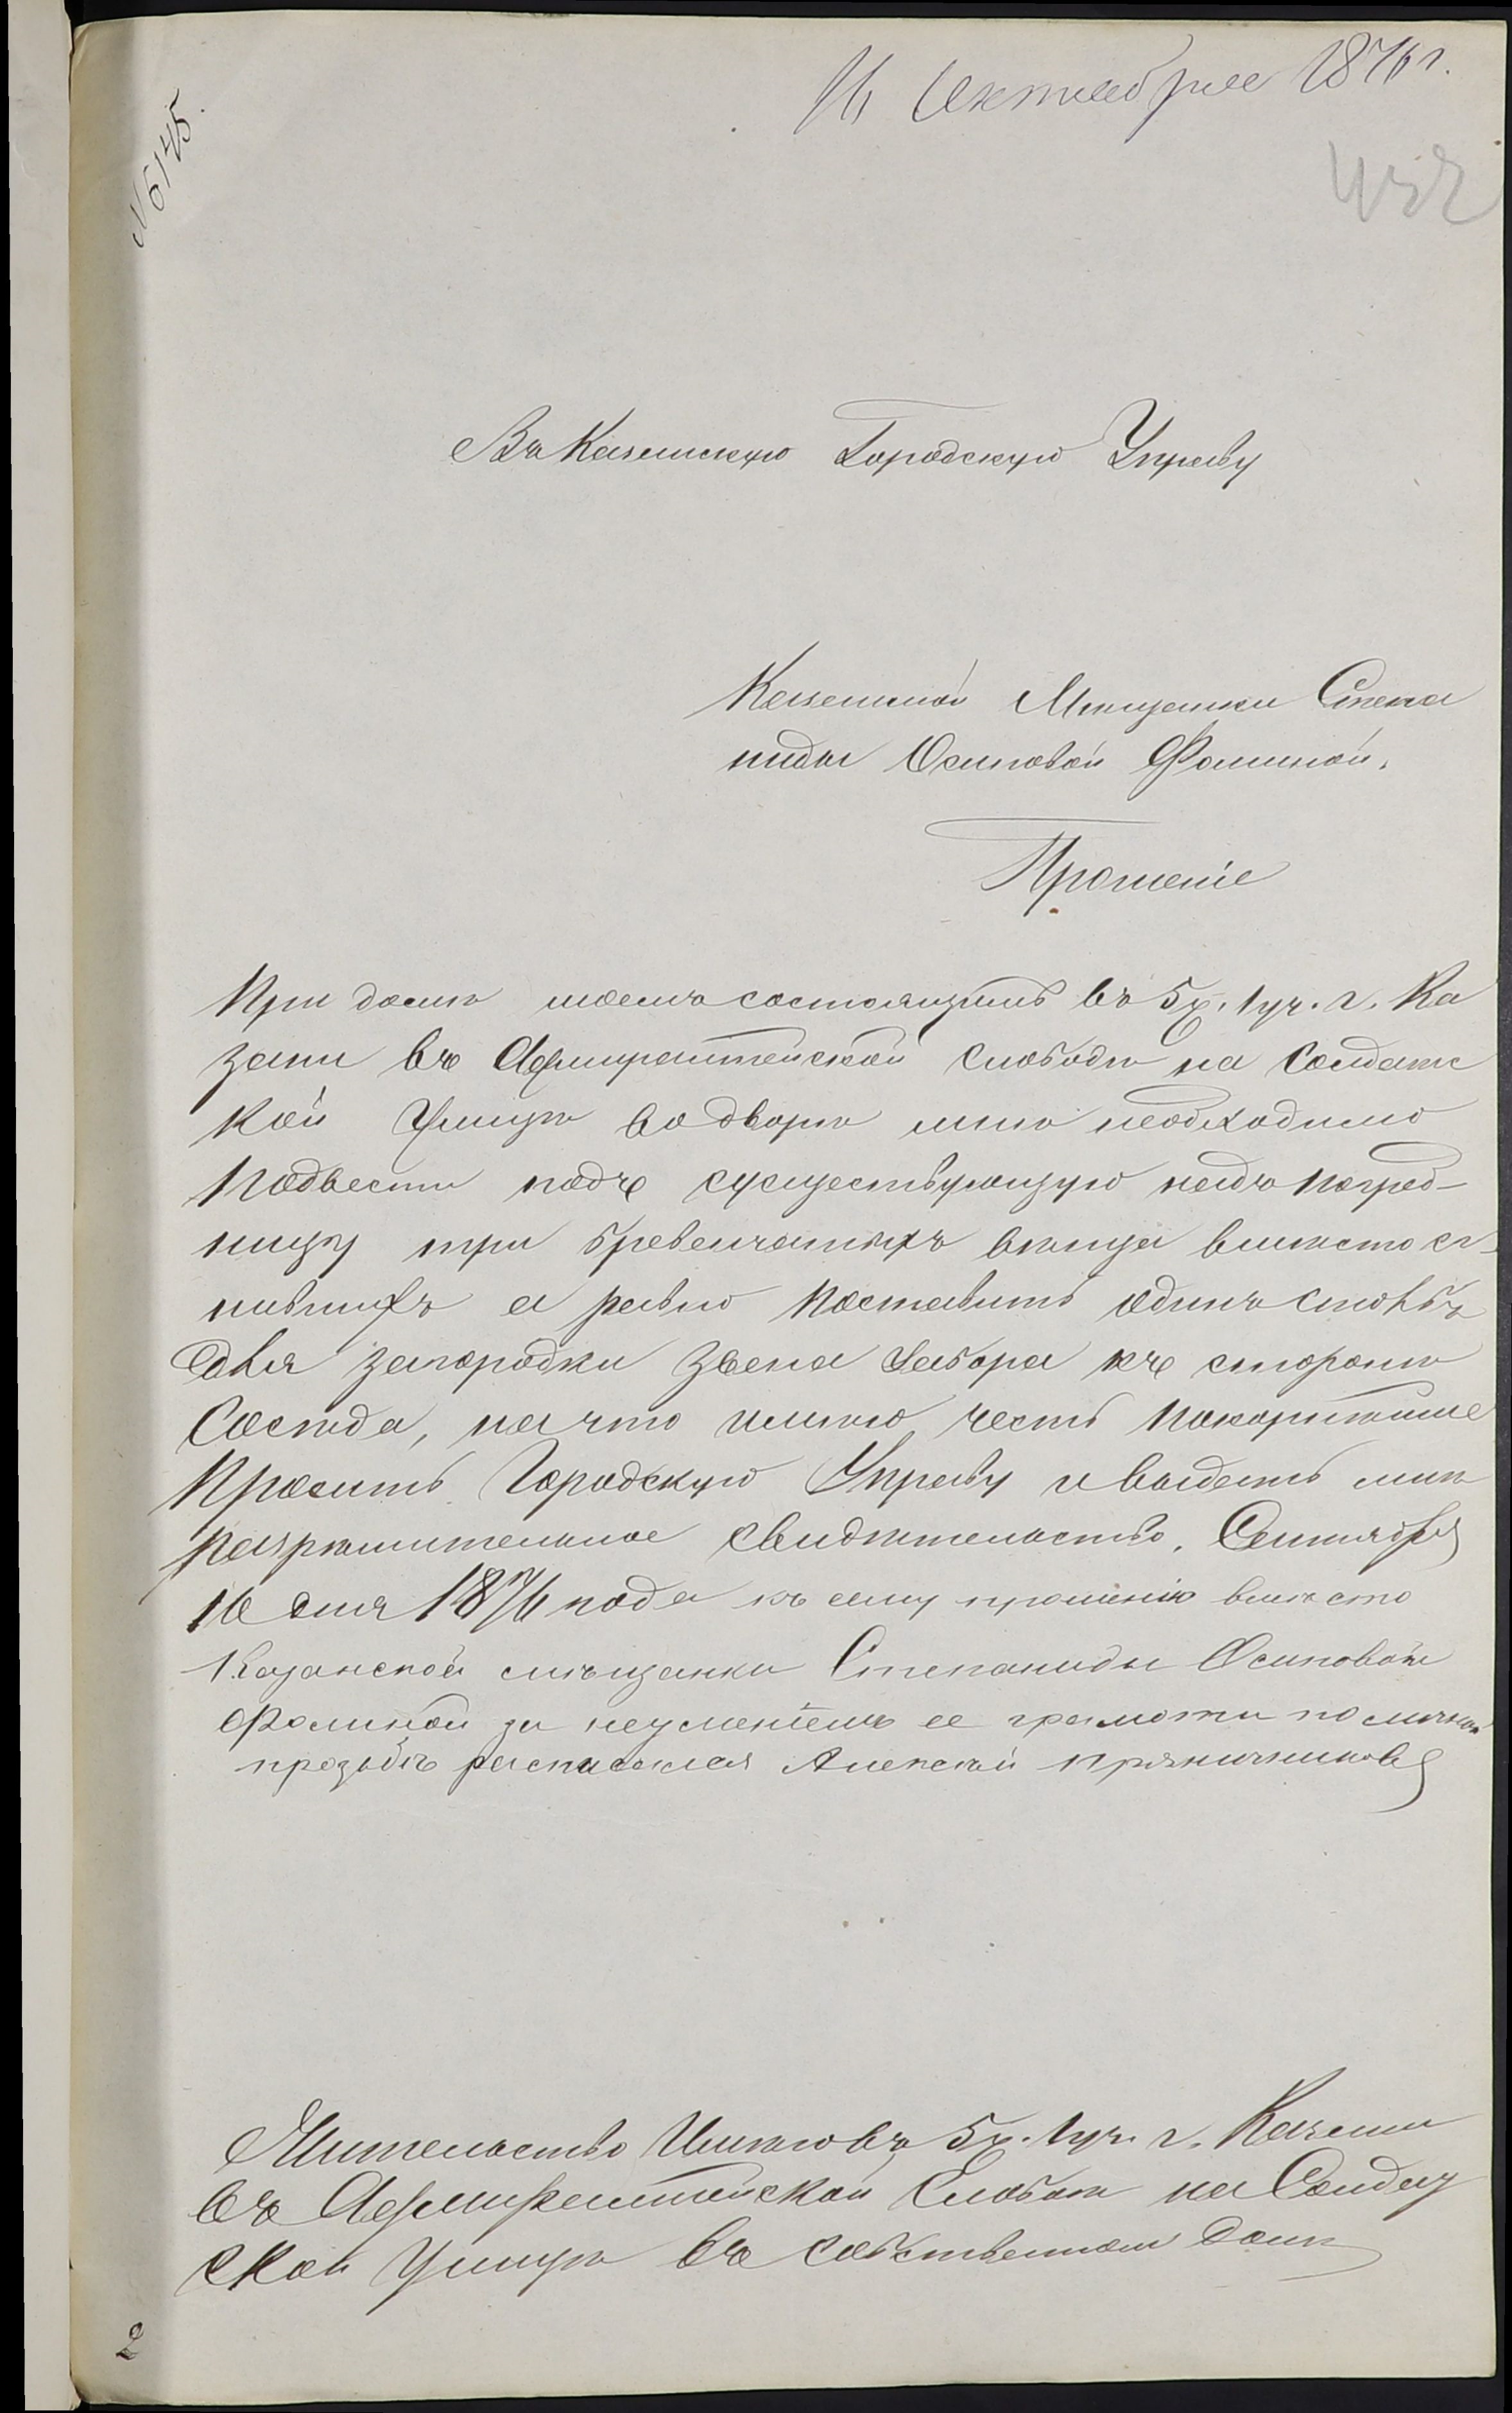 16 Октября 1876 г.
№ 6145.
432
Въ Казанскую Городскую Управу
Казанской Мѣщанки Степа
ниды Осиповой Фоминой.
Прошеніе
При домѣ моемъ состоящимъ въ 5 ч. 1 уч. г. Ка
зани въ Адмиралтейской слободѣ на Солдатс
кой Улицѣ во дворѣ мнѣ необходимо
подвести подъ существующую надъ погреб-
ницу три бревенчатыхъ вѣнца вмѣсто сг-
нившихъ а равно поставить одинъ столбъ
для загородки звена забора къ сторонѣ
Сосѣда, на что имѣю честь покорнѣйше
Просить Городскую Управу и выдать мнѣ
разрѣшительное свидѣтельство. Сентября
16 дня 1876 года къ сему прошенію вмѣсто
Казанской мѣщанки Степаниды Осиповой
Фоминой за неуменіемъ ее грамоты по личной
прозьбѣ расписался Алексѣй Пряничниковъ
Жительство Имѣю въ 5 ч. 1 уч. г. Казани
въ Адмиралтейской Слободѣ на Солдат
ской Улицѣ въ собственномъ домѣ
2